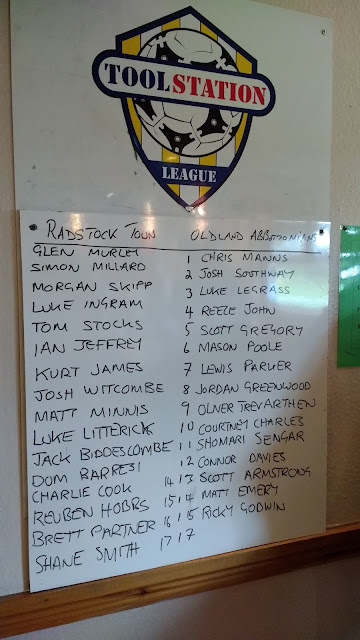 TOOLSTATION
LEAGUE
RADSTOCK TOWN OLDLAND ABBOTONIANS
GLEN MURLEY 1 CHRIS MANNS
SIMON MILLARD 2 JOSH SOUTHWAY
MORGAN SKIPP 3 LUKE LEGRASS
LUKE INGRAM 4 REECE JOHN
TOM STOCKS 5 SCOTT GREGORY
IAN JEFFREY 6 MASON POOLE
KURT JAMES 7 LEWIS PARKER
JOSH WITCOMBE 8 JORDAN GREENWOOD
MATT MINNIS 9 OLIVER TREVARTHEN
LUKE LITTERICK 10 COURTNEY CHARLES
JACK BIDDESCOMBE 11 SHOMARI SENGAR
DOM BARRESI 12 CONNOR DAVIES
CHARLIE COOK 14 13 SCOTT ARMSTRONG
REUBEN HOBBS 15 14 MATT EMERY
BRETT PARTNER 16 15 RICKY GODWIN
SHANE SMITH 17 17